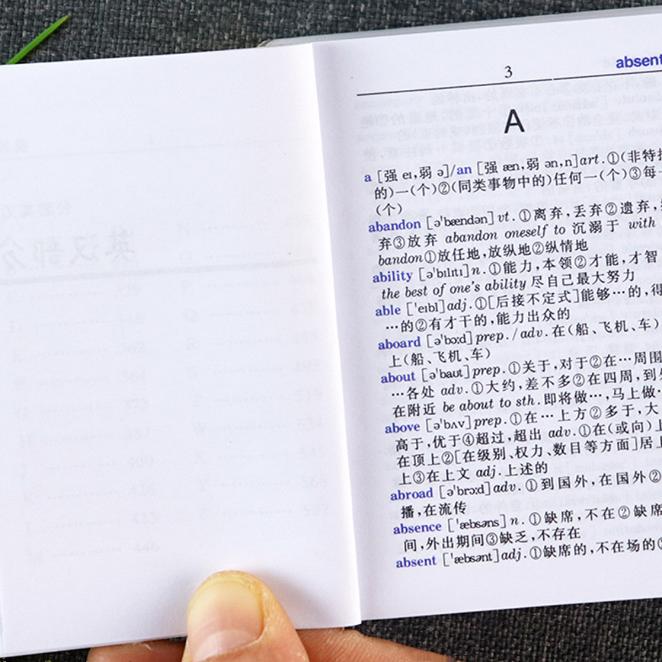 3
absent
A
a [强 eɪ,弱 ə]/an [强 æn,弱 ən,n] art.①(非特指
的)一(个)②(同类事物中的)任何一(个)③每一
(个)
abandon [ə'bændən] vt.①离弃,丢弃②遗弃,
弃③放弃 abandon oneself to 沉溺于 with
bandon①放任地,放纵地②纵情地
ability [ə'bɪlɪtɪ] n.①能力,本领②才能,才智
the best of one's ability 尽自己最大努力
able ['eɪbl] adj.①[后接不定式]能够…的,得
…的②有才干的,能力出众的
aboard [ə'bɔːd] prep./adv.在(船、飞机、车)
上(船、飞机、车)
about [ə'baut] prep.①关于,对于②在…周围
…各处 adv.①大约,差不多②在四周,到处
在附近 be about to sth.即将做…,马上做
above [ə'bʌv] prep.①在…上方②多于,大
高于,优于④超过,超出 adv.①在(或向)上
在顶上②[在级别、权力、数目等方面]居上
上③在上文 adj.上述的
abroad [ə'brɔːd] adv.①到国外,在国外②
播,在流传
absence ['æbsəns] n.①缺席,不在②缺席
间,外出期间③缺乏,不存在
absent ['æbsənt] adj.①缺席的,不在场的②
英汉部分